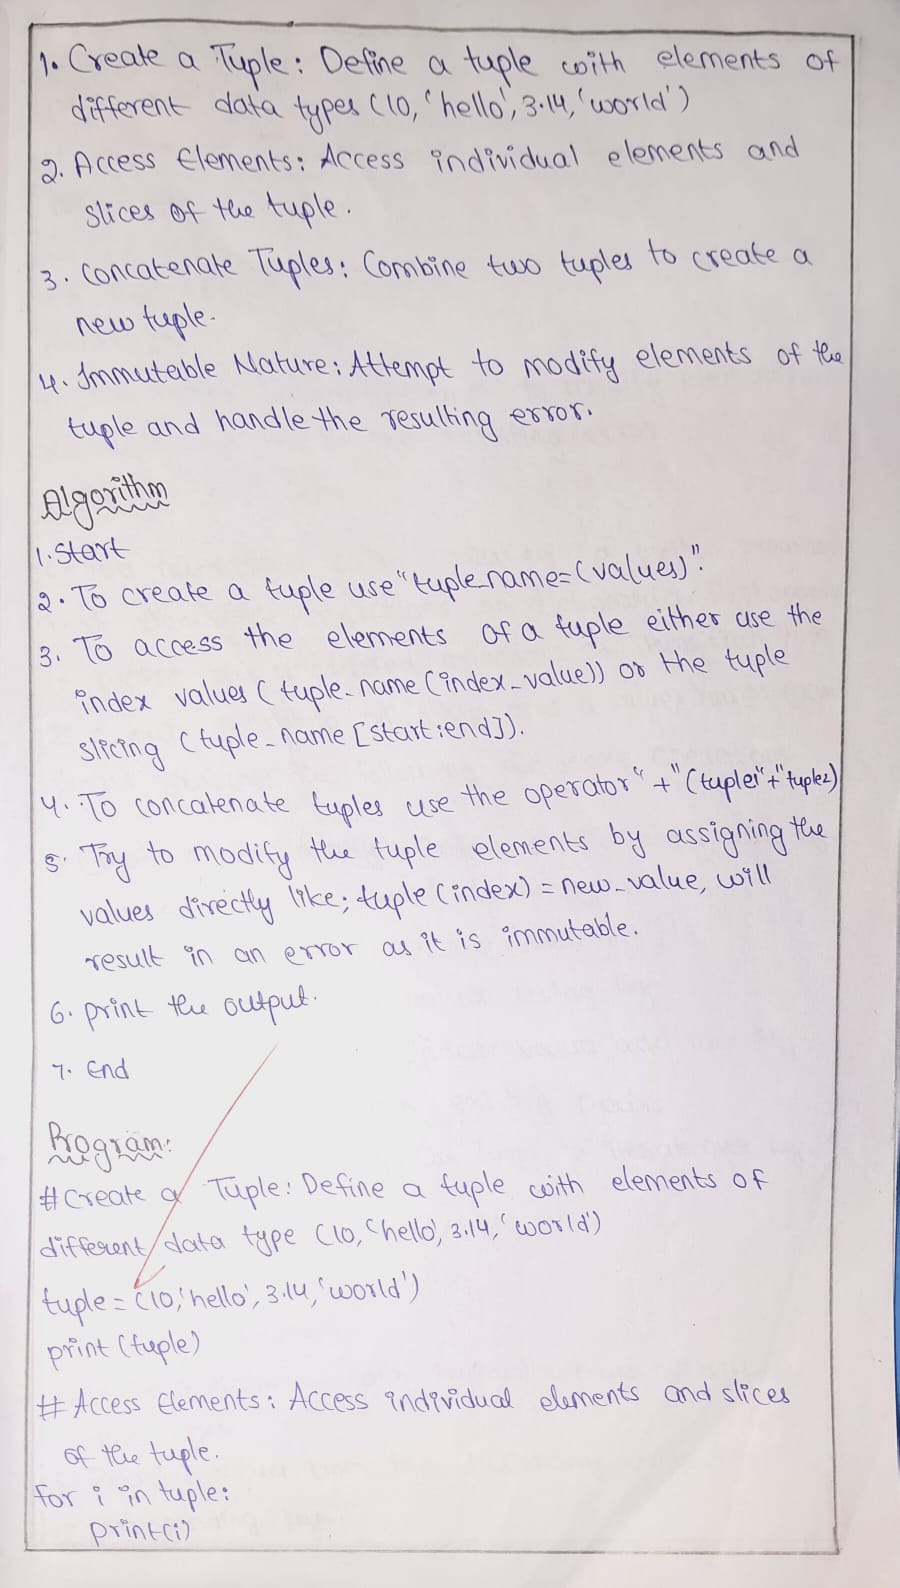 1. Create a Tuple: Define a tuple with elements of
different data types (10, 'hello', 3.14, 'world')
2. Access Elements: Access individual elements and
slices of the tuple.
3. Concatenate Tuples: Combine two tuples to create a
new tuple.
4. Immutable Nature: Attempt to modify elements of the
tuple and handle the resulting error.
Algorithm
1. Start
2. To create a tuple use "tuple_name=(values)".
3. To access the elements of a tuple either use the
index values (tuple_name(index_value)) or the tuple
slicing (tuple_name[start:end]).
4. To concatenate tuples use the operator "+" (tuple1"+"tuple2)
5. Try to modify the tuple elements by assigning the
values directly like; tuple(index) = new_value, will
result in an error as it is immutable.
6. print the output.
7. End
Program:
#Create a Tuple: Define a tuple with elements of
different data type (10, 'hello', 3.14, 'world')
tuple = (10, 'hello', 3.14, 'world')
print (tuple)
# Access Elements: Access individual elements and slices
of the tuple.
for i in tuple:
print(i)